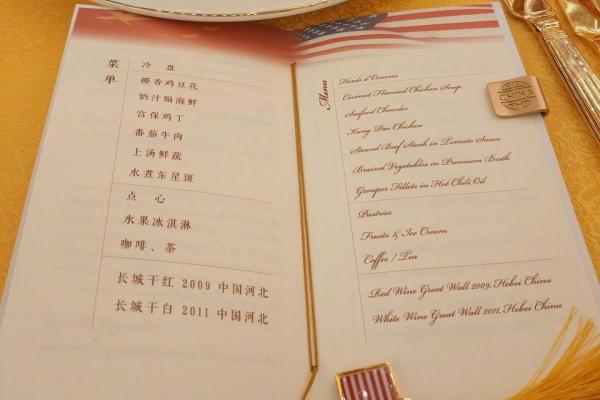 菜单
冷 盘
椰香鸡豆花
奶汁焗海鲜
宫保鸡丁
番茄牛肉
上汤鲜蔬
水煮东星斑
点 心
水果冰淇淋
咖啡、茶
长城干红 2009 中国河北
长城干白 2011 中国河北
Menu
Hords d'Oeuvres
Coconut Flavored Chicken Soup
Seafood Chowder
Kung Pao Chicken
Stewed Beef Steak in Tomato Sauce
Braised Vegetables in Premium Broth
Grouper Fillets in Hot Chili Oil
Pastries
Fruits & Ice Cream
Coffee / Tea
Red Wine Great Wall 2009, Hebei China
White Wine Great Wall 2011, Hebei China